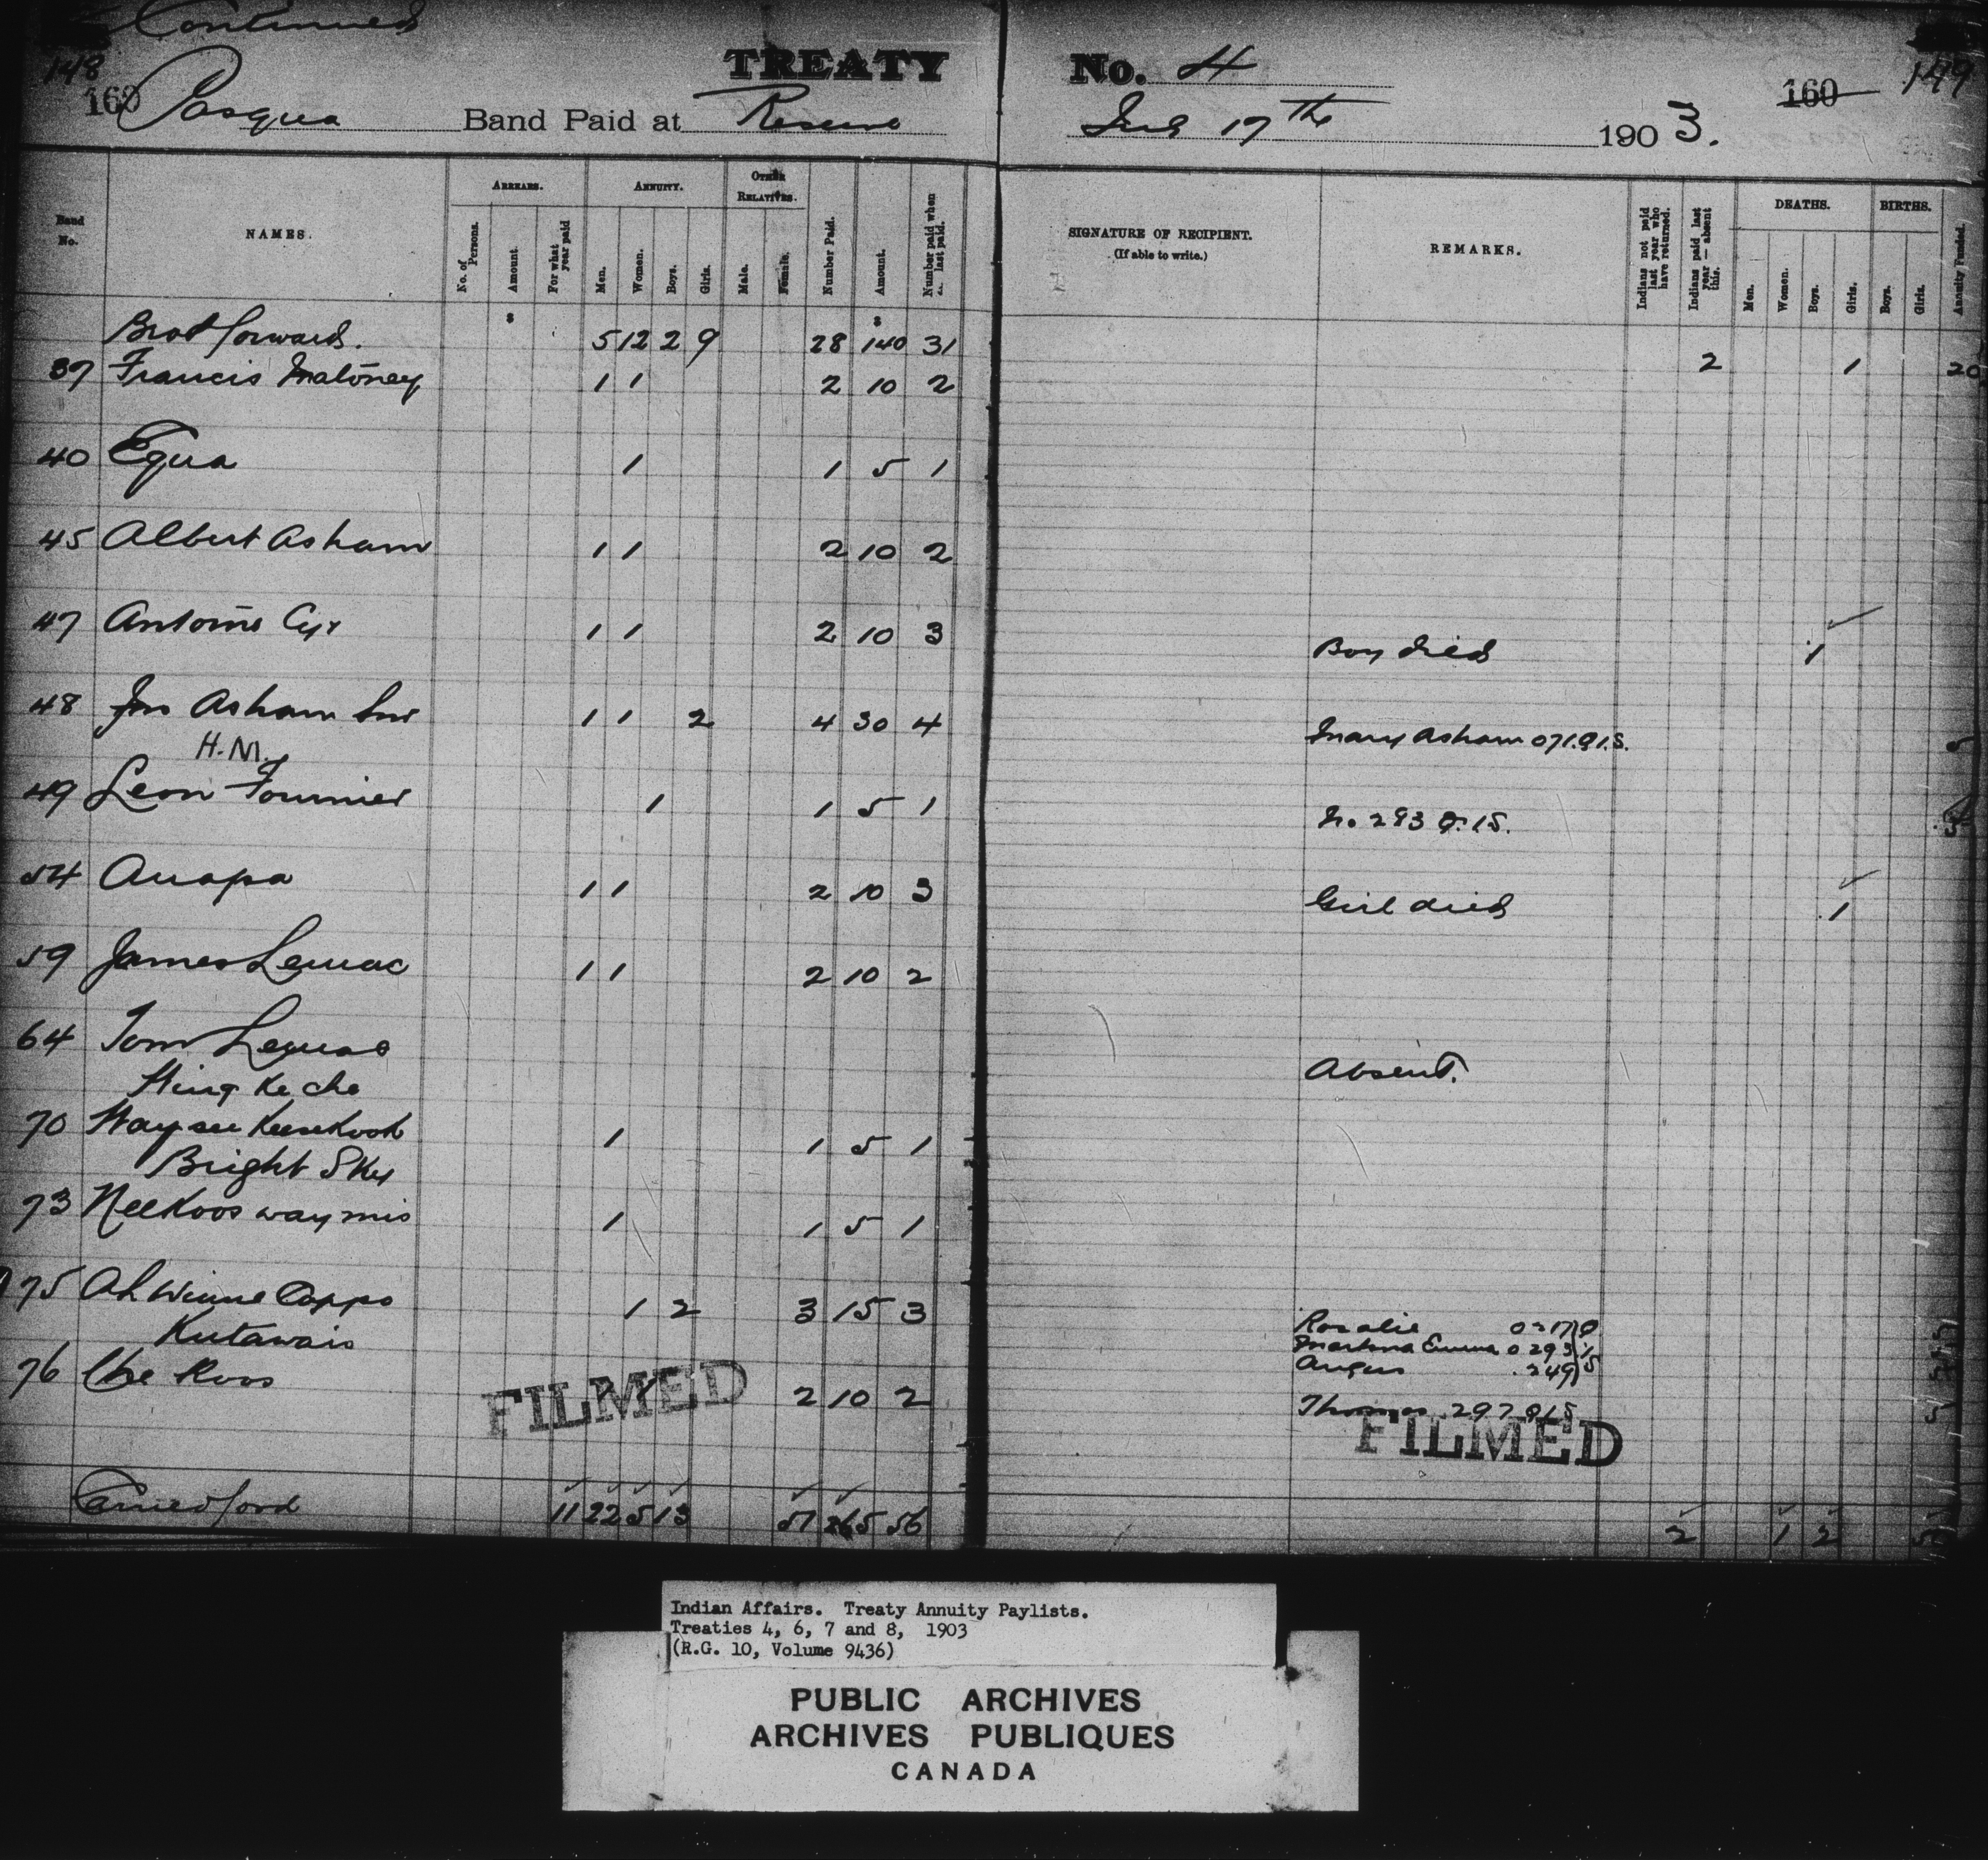 Continued
148 TREATY No. 4 149
160 Pasqua Band Paid at Reserve July 17th 1903. 160
Band No. NAMES. ARREARS. ANNUITY. OTHER RELATIVES. Number Paid. Amount. Number paid when last paid. SIGNATURE OF RECIPIENT. (If able to write.) REMARKS. Indians not paid last year who have returned. Indians paid last year — absent this. DEATHS. BIRTHS. Annuity Funded.
No. of Persons. Amount. For what year paid Men. Women. Boys. Girls. Male. Female. Men. Women. Boys. Girls. Boys. Girls.
$ $
Brot forward. 5 12 2 9 28 140 31 2 1 20
37 Francis Maloney 1 1 2 10 2
40 Equa 1 1 5 1
45 Albert Asham 1 1 2 10 2
47 Antoine Cyr 1 1 2 10 3 Boy died 1
48 Jno Asham Snr 1 1 2 4 30 4 Mary Asham 071.Q.I.S. 5
H.M.
49 Leon Fournier 1 1 5 1 No 293 Q.I.S.
54 Auapa 1 1 2 10 3 Girl died 1
59 James Lewac 1 1 2 10 2
64 Tom Lewac
Absent.
70 1 1 5 1
Bright Sky
73 Neekooswaymis 1 1 5 1
75 Ah Winne Cappo 1 2 3 15 3 Rosalie
Kutawais Emma 0293
76 Che Koos 2 10 2 Angus 249
Thomas 297 Q I S
FILMED
FILMED
Carried ford 11 22 5 13 51 265 56 2 1 2
Indian Affairs. Treaty Annuity Paylists.
Treaties 4, 6, 7 and 8, 1903
(R.G. 10, Volume 9436)
PUBLIC ARCHIVES
ARCHIVES PUBLIQUES
CANADA